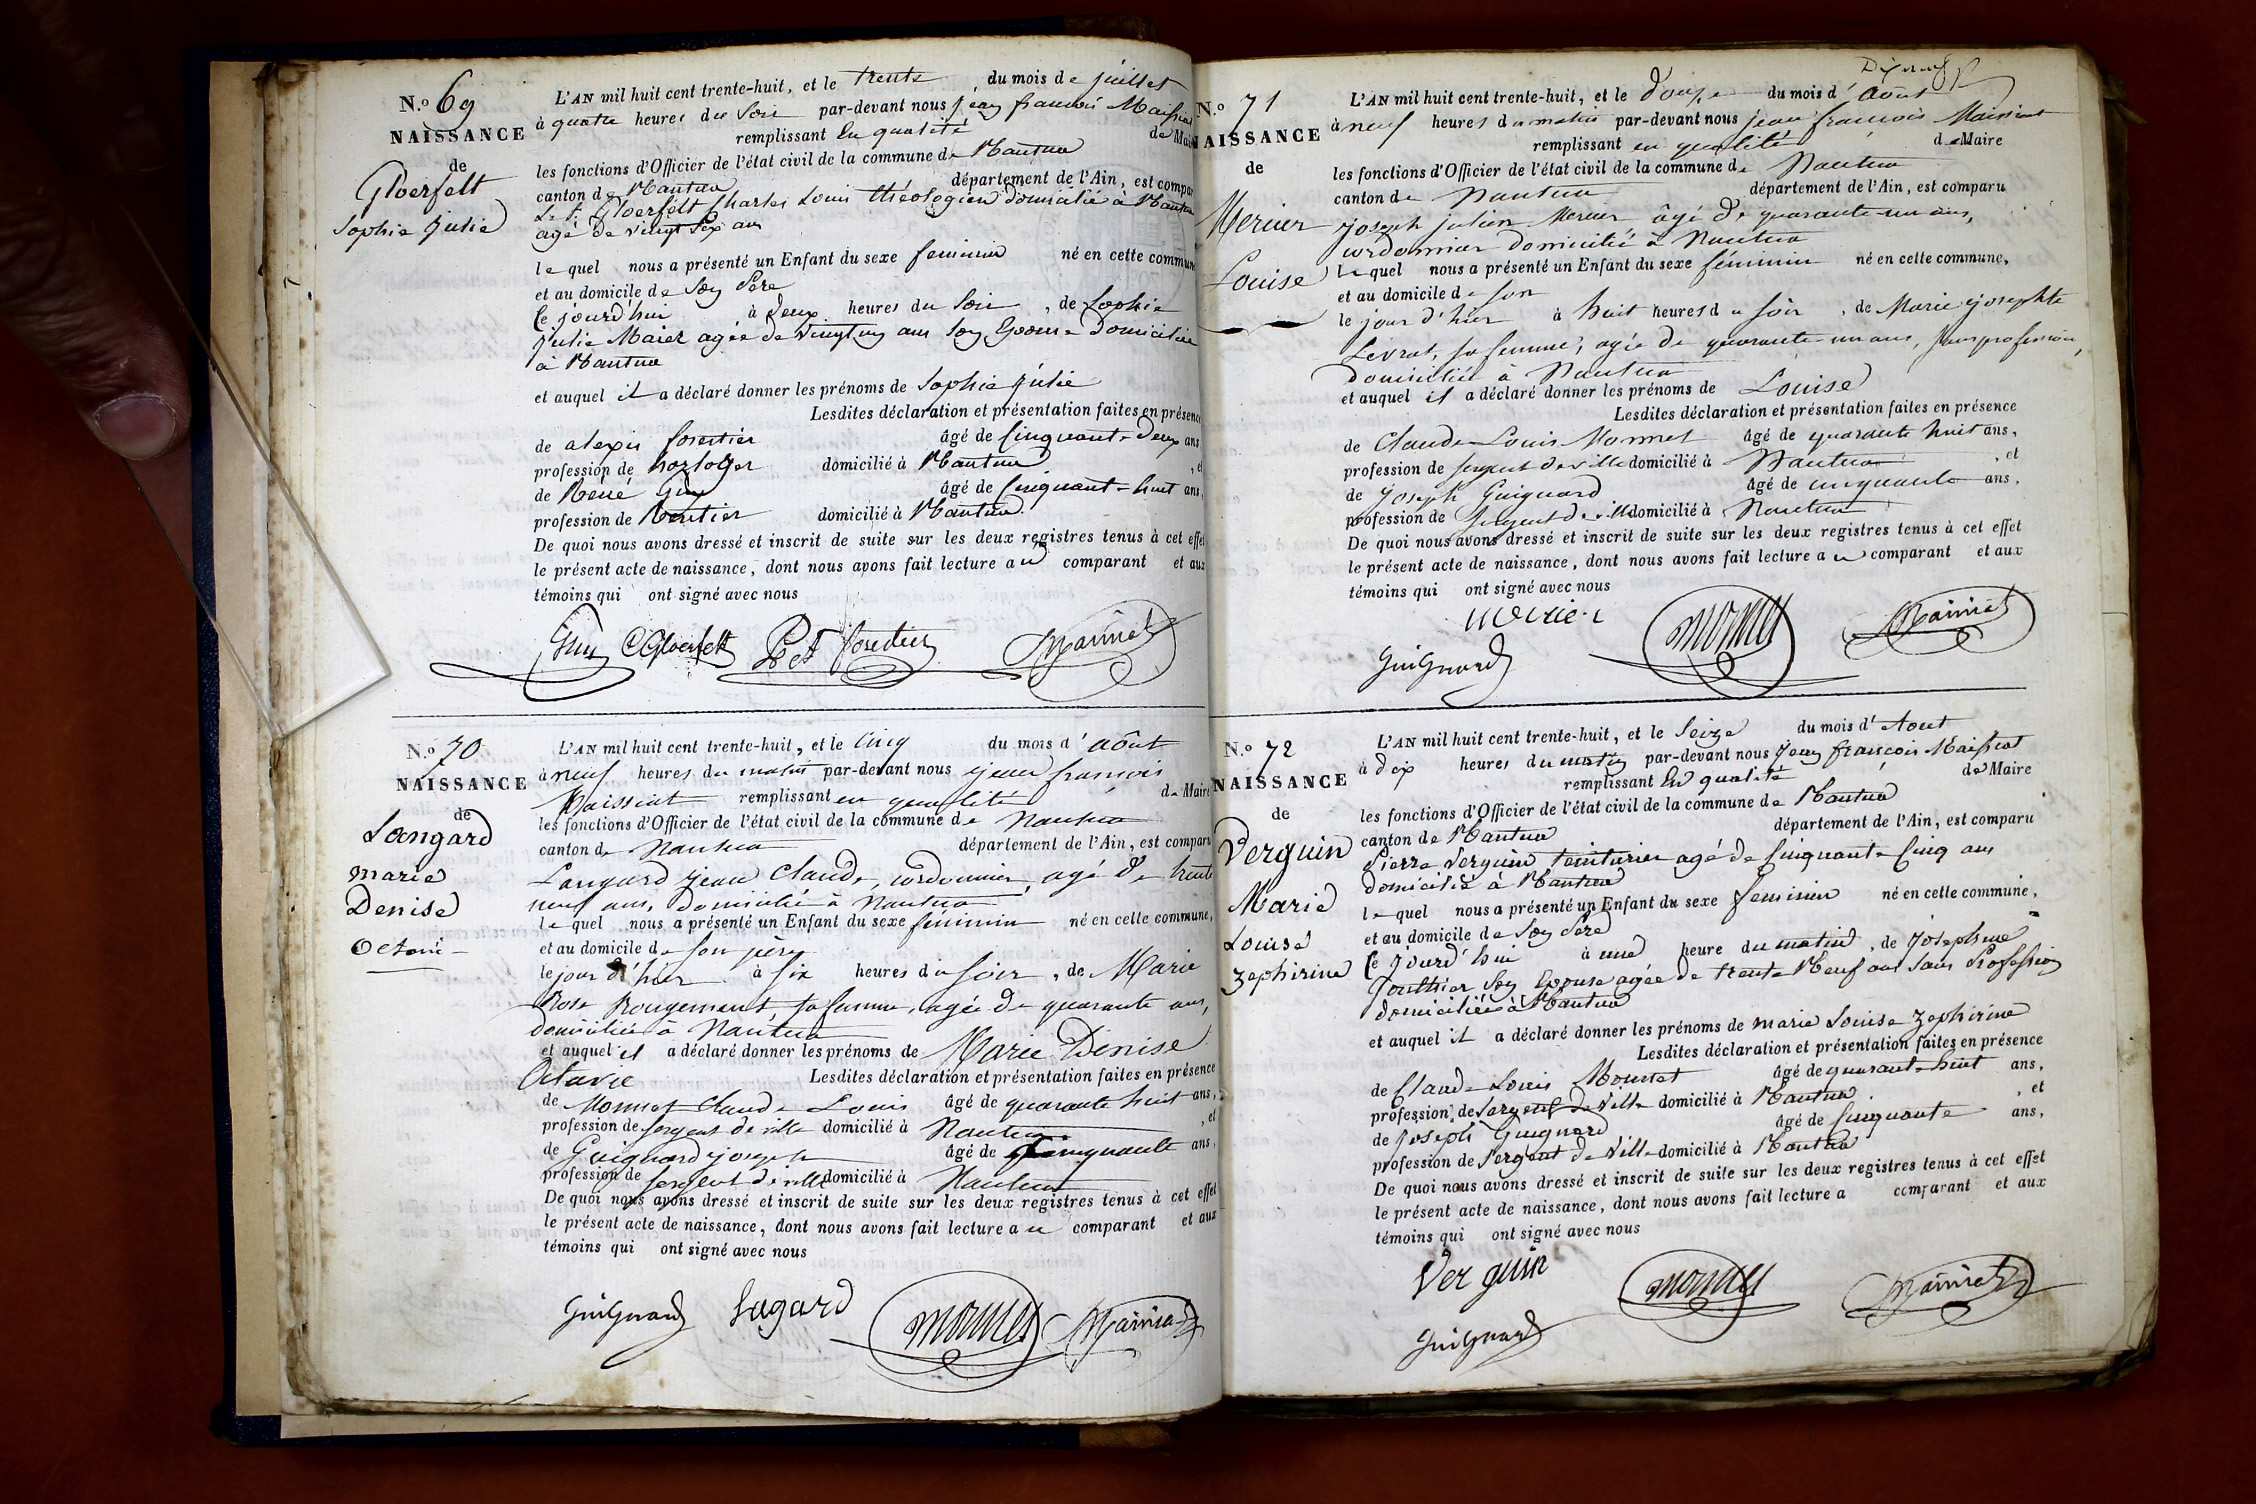 N.o 69
NAISSANCE
de
Gloerfelt
Sophie Julie
L'AN mil huit cent trente-huit, et le trente du mois de juillet
à quatre heures du Soir par-devant nous jean francois Maissiat
remplissant En qualité de Mai
les fonctions d'Officier de l'état civil de la commune de Nantua
canton de Nantua département de l'Ain, est compar
Le S. Gloerfelt Charles Louis théologien domicilié à Nantua
agé de vingt Six ans
lequel nous a présenté un Enfant du sexe feminin né en cette commune
et au domicile de Son Père
Ce jourd'hui à deux heures du Soir, de Sophie
Julie Maier agée de vingt un ans Son Epouse domiciliée
à Nantua
et auquel il a déclaré donner les prénoms de Sophie Julie
Lesdites déclaration et présentation faites en présence
de alexis forestier âgé de Cinquante deux ans
profession de horloger domicilié à Nantua, et
de René Guy âgé de Cinquante huit ans,
profession de Rentier domicilié à Nantua.
De quoi nous avons dressé et inscrit de suite sur les deux registres tenus à cet effet
le présent acte de naissance, dont nous avons fait lecture au comparant et aux
témoins qui ont signé avec nous
Guy C Gloerfelt forestier Maissiat
N.o 70
NAISSANCE
de
Langard
marie
Denise
Octavie
L'AN mil huit cent trente-huit, et le Cinq du mois d'août
à neuf heures du matin par-devant nous jean francois
Maissiat remplissant en qualité de Maire
les fonctions d'Officier de l'état civil de la commune de Nantua
canton de Nantua département de l'Ain, est comparu
Langard jean Claude, cordonnier, agé de trente
neuf ans, domicilié à Nantua
lequel nous a présenté un Enfant du sexe féminin né en cette commune,
et au domicile de son père
le jour d'hier à six heures du soir, de Marie
Rose Rougemont, sa femme, agée de quarante ans,
domiciliée à Nantua
et auquel il a déclaré donner les prénoms de Marie Denise
Octavie Lesdites déclaration et présentation faites en présence
de Monnet Claude Louis âgé de quarante huit ans,
profession de sergent de ville domicilié à Nantua, et
de Guignard joseph âgé de cinquante ans,
profession de sergent de ville domicilié à Nantua
De quoi nous avons dressé et inscrit de suite sur les deux registres tenus à cet effet
le présent acte de naissance, dont nous avons fait lecture au comparant et aux
témoins qui ont signé avec nous
Guignard Lagard monnet Maissiat
N.o 71
NAISSANCE
de
Mercier
Louise
L'AN mil huit cent trente-huit, et le douze du mois d'août
à neuf heures du matin par-devant nous jean francois Maissiat
remplissant en qualité de Maire
les fonctions d'Officier de l'état civil de la commune de Nantua
canton de Nantua département de l'Ain, est comparu
joseph julien Mercier âgé de quarante-un ans,
cordonnier domicilié à Nantua
lequel nous a présenté un Enfant du sexe féminin né en cette commune,
et au domicile de son
le jour d'hier à huit heures du soir, de Marie josephte
Levrat, sa femme, agée de quarante-un ans, sans profession,
domiciliée à Nantua
et auquel il a déclaré donner les prénoms de Louise
Lesdites déclaration et présentation faites en présence
de Claude Louis Monnet âgé de quarante huit ans,
profession de sergent de ville domicilié à Nantua, et
de Joseph Guignard âgé de cinquante ans,
profession de sergent de ville domicilié à Nantua
De quoi nous avons dressé et inscrit de suite sur les deux registres tenus à cet effet
le présent acte de naissance, dont nous avons fait lecture au comparant et aux
témoins qui ont signé avec nous
mercier monnet Maissiat
Guignard
N.o 72
NAISSANCE
de
Verguin
Marie
Louise
Zephirine
L'AN mil huit cent trente-huit, et le Seize du mois d'Aout
à dix heures du matin par-devant nous Jean françois Maissiat
remplissant En qualité de Maire
les fonctions d'Officier de l'état civil de la commune de Nantua
canton de Nantua département de l'Ain, est comparu
Pierre Verguin teinturier agé de Cinquante Cinq ans
domicilié à Nantua
lequel nous a présenté un Enfant du sexe feminin né en cette commune,
et au domicile de Son Père
Ce jourd'hui à une heure du matin, de Josephine
Gouthier Son Epouse agée de trente Neuf ans Sans Profession
domiciliée à Nantua
et auquel il a déclaré donner les prénoms de marie Louise Zephirine
Lesdites déclaration et présentation faites en présence
de Claude Louis Monnet âgé de quarante-huit ans,
profession de Sergent de Ville domicilié à Nantua, et
de Joseph Guignard âgé de Cinquante ans,
profession de Sergent de Ville domicilié à Nantua
De quoi nous avons dressé et inscrit de suite sur les deux registres tenus à cet effet
le présent acte de naissance, dont nous avons fait lecture a comparant et aux
témoins qui ont signé avec nous
Verguin monnet Maissiat
Guignard